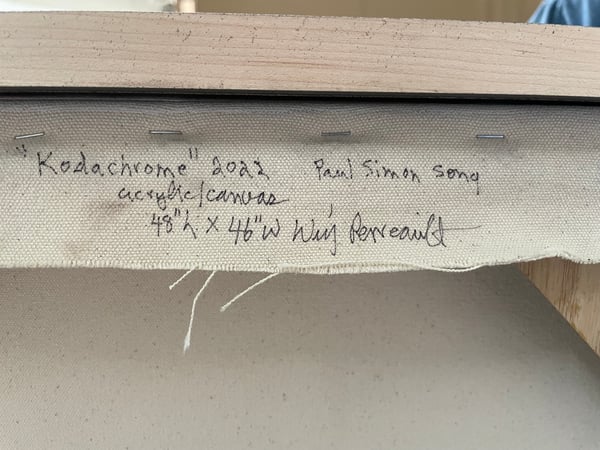 "Kodachrome" 2022 Paul Simon song
acrylic/canvas
48"h X 46"W Perreault